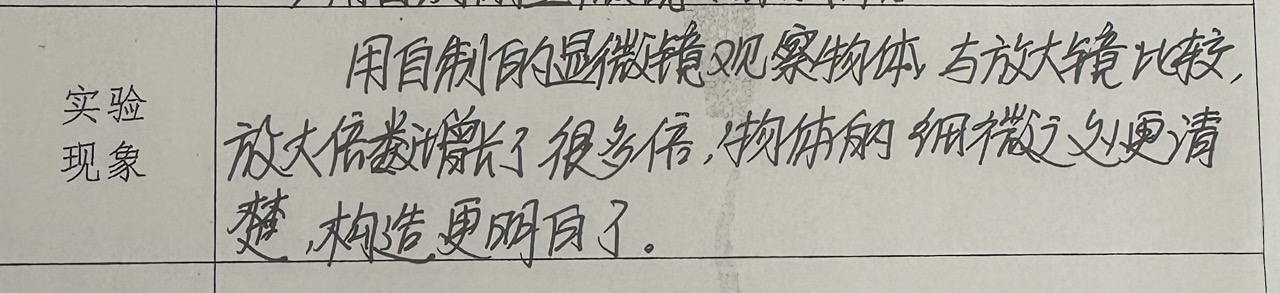 实验
现象
用自制的显微镜观察物体,与放大镜比较,
放大倍数增长了很多倍,物体的细微之处更清
楚,构造更明白了。